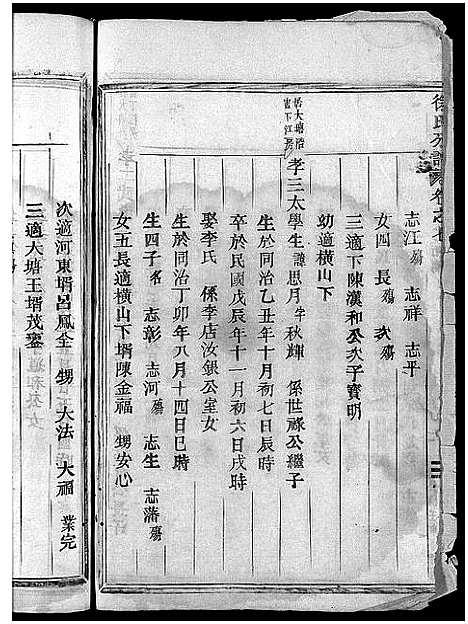 徐氏分譜 卷之七
志江殤 志祥 志平
女四 長殤 次殤
三適下陳漢和公次子寶明
幼適橫山下
居大塘沿
下江房
孝三太學生諱思月字秋輝 係世祿公繼子
生於同治乙丑年十月初七日辰時
卒於民國戊辰年十一月初六日戌時
娶李氏 係李店汝銀公室女
生於同治丁卯年八月十四日巳時
生四子名 志彰 志河殤 志生 志藩殤
女五長適橫山下壻陳金福 甥安心
次適河東壻呂鳳全 甥 大法 大福 業完
三適大塘王壻茂鎏